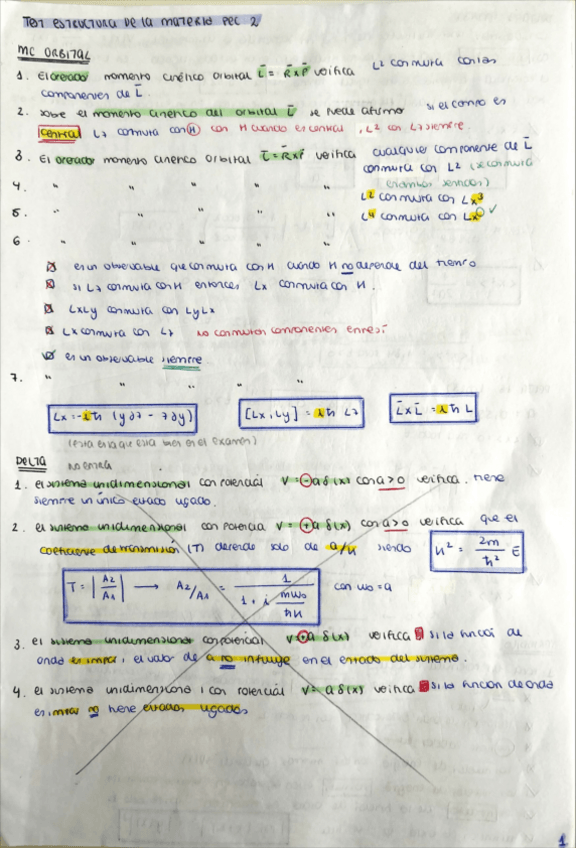 TEST ESTRUCTURA DE LA MATERIA PEC 2
MC ORBITAL
1. El operador momento cinético orbital L = R x P verifica L² conmuta con las
componentes de L.
2. sobre el momento cinético del orbital L se puede afirmar si el campo es
central Lz conmuta con H con H cuando es central, L² con Lz siempre.
3. El operador momento cinético orbital L = R x P verifica cualquier componente de L
conmuta con L² (se conmuta
en ambos sentidos)
4. " " " " " L² conmuta con Lx³
5. " " " " " L⁴ conmuta con Lx ✓
6. " " " " "
☒ es un observable que conmuta con H cuando H no depende del tiempo
☒ si Lz conmuta con H entonces Lx conmuta con H.
☒ LxLy conmuta con LyLx
☒ Lx conmuta con Lz no conmutan componentes entre sí
☑ es un observable siempre
7. " " " "
Lx = -iħ (y∂z - z∂y) [Lx, Ly] = iħ Lz L x L = iħ L
(esta es la que está bien en el examen)
DELTA no entra
1. el sistema unidimensional con potencial V = -a δ(x) con a>0 verifica. tiene
siempre un único estado ligado.
2. el sistema unidimensional con potencial V = +a δ(x) con a>0 verifica que el
coeficiente de transmisión (T) depende solo de a/k siendo k² = 2m/ħ² E
T = |A2/A1| → A2/A1 = 1/(1 + i mw₀/ħk) con w₀ = a
3. el sistema unidimensional con potencial V = +a δ(x) verifica si la función de
onda es impar, el valor de a no influye en el estado del sistema.
4. el sistema unidimensional con potencial V = a δ(x) verifica si la función de onda
es impar no tiene estados ligados
1